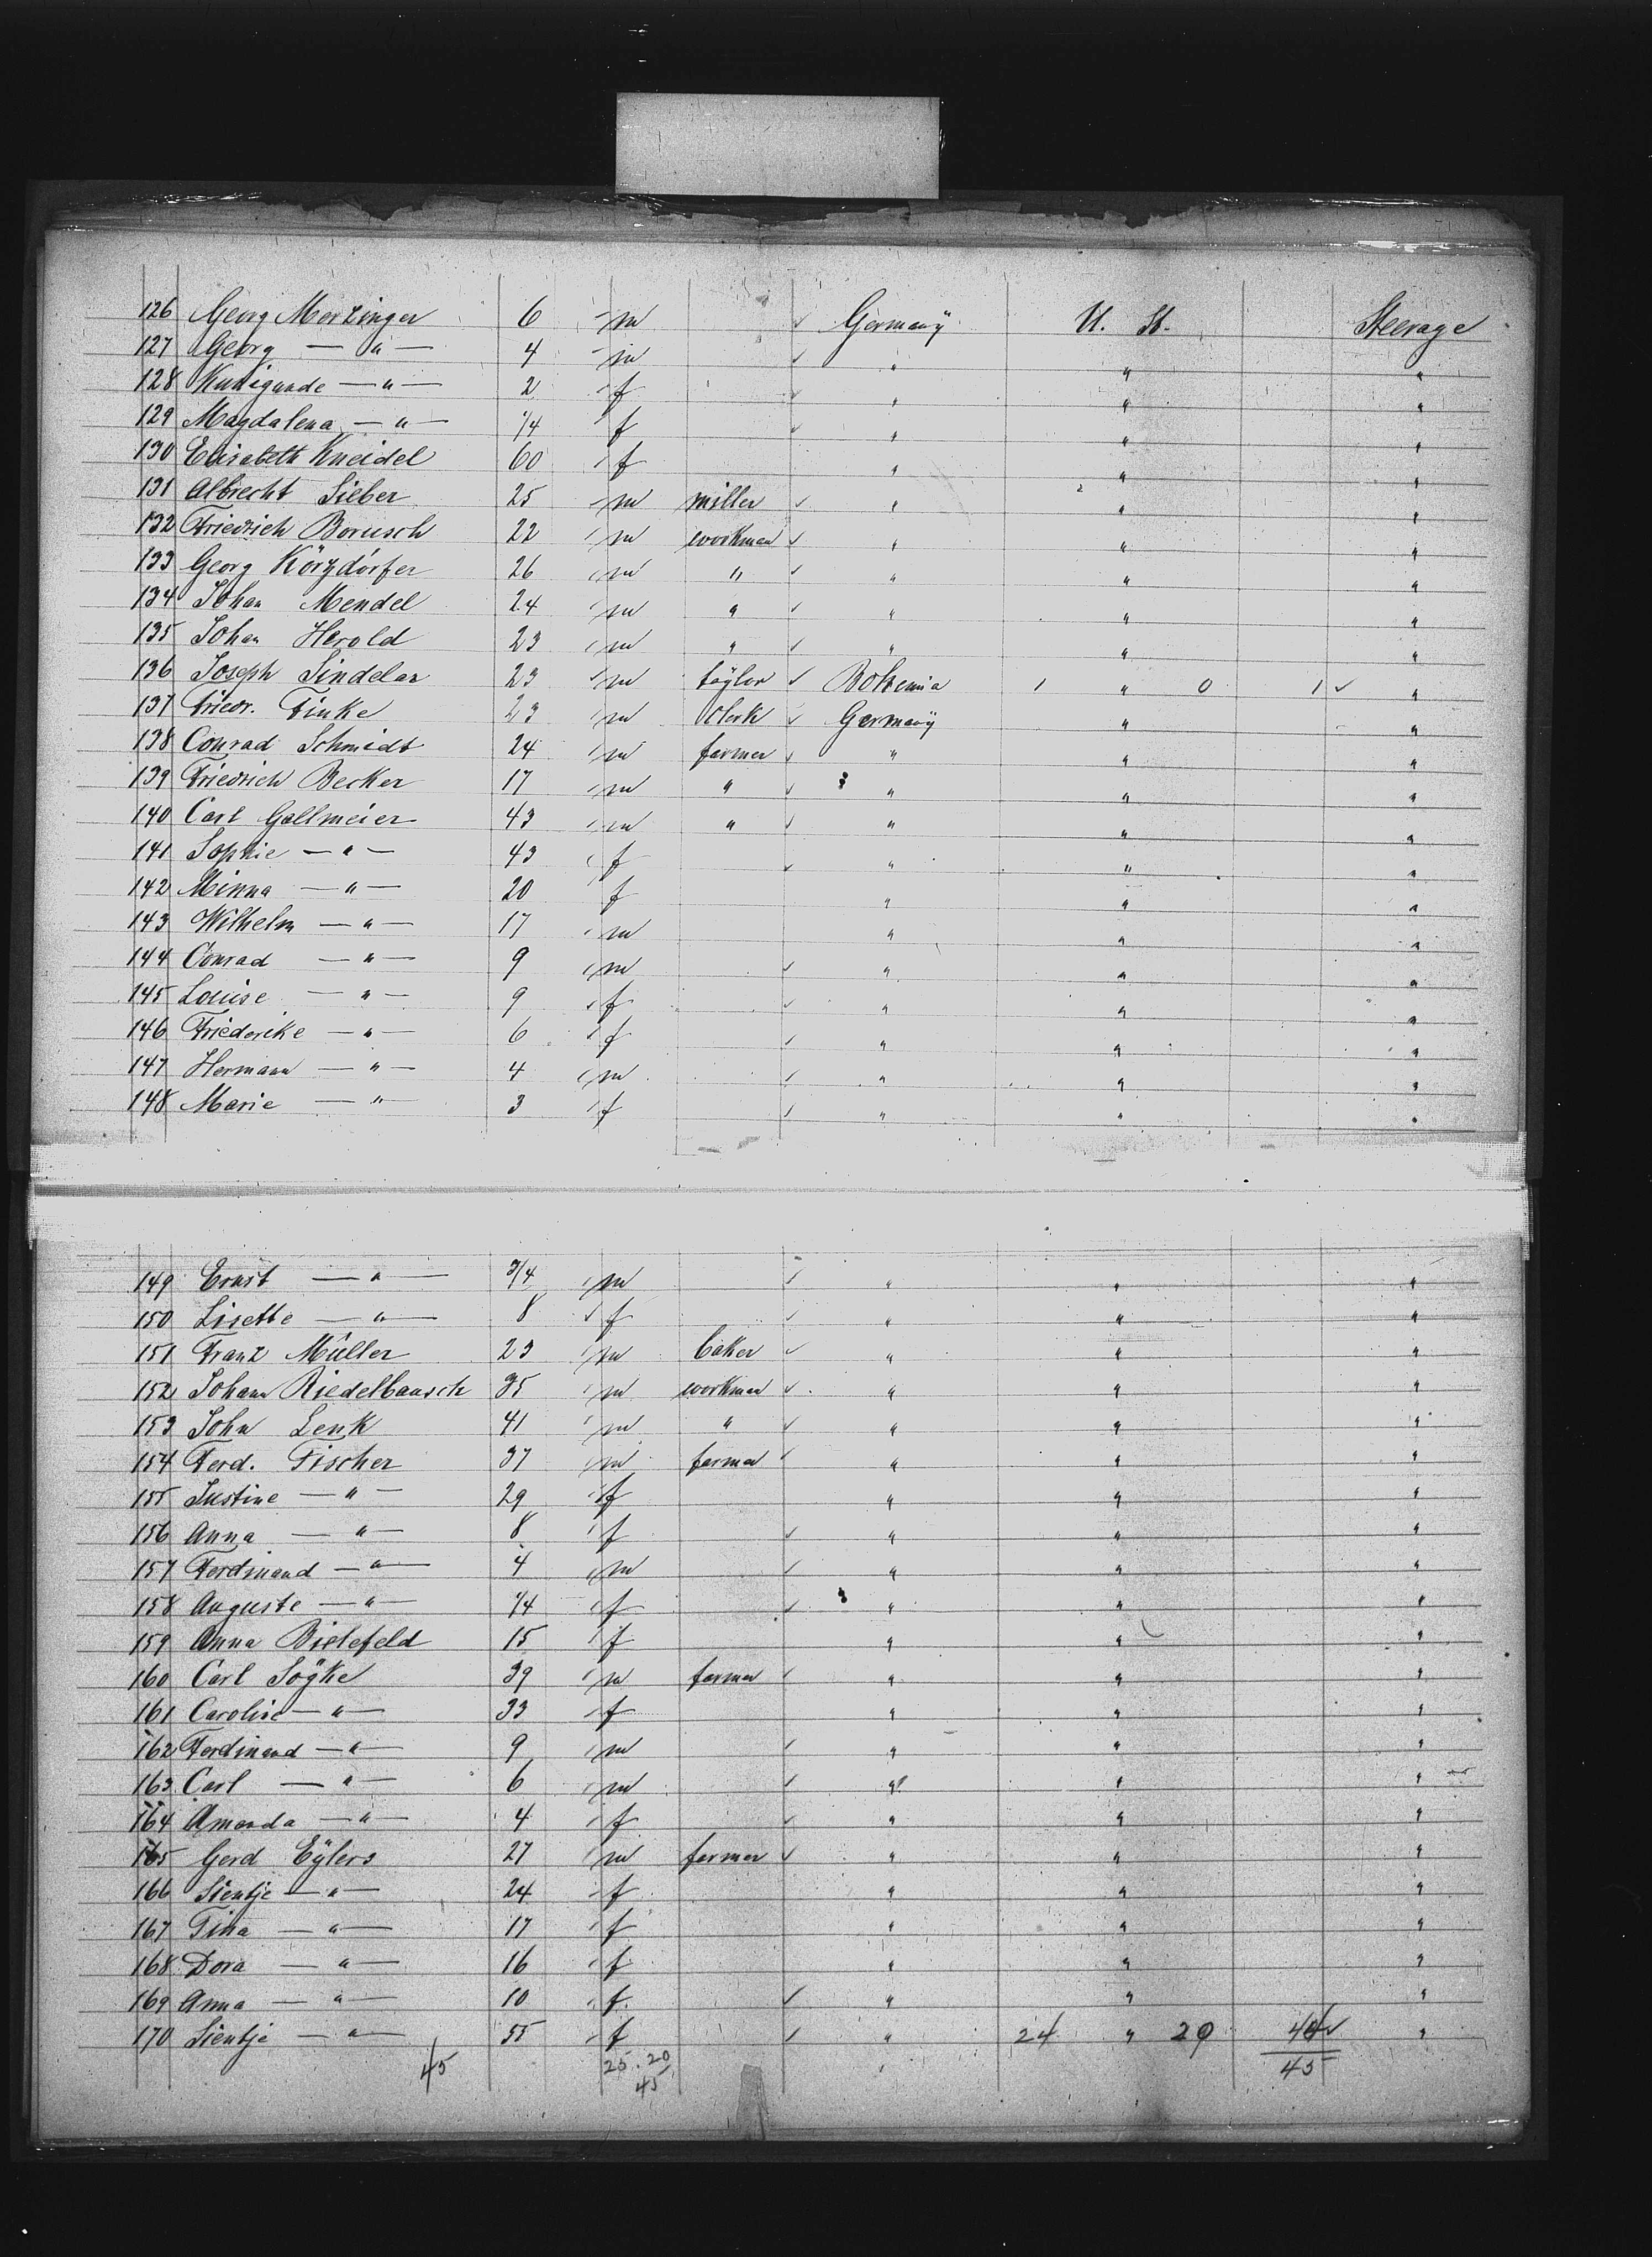 126 Georg Merzinger 6 m Germany U. St. Steerage
127 Georg — " — 4 m " " "
128 Kunigunde — " — 2 f " " "
129 Magdalena — " — 1/4 f " " "
130 Elisabeth Kneidel 60 f " " "
131 Albrecht Sieber 25 m miller " " "
132 Friedrich Borusch 22 m workman " " "
133 Georg Körzdörfer 26 m " " " "
134 Johan Mendel 24 m " " " "
135 Johan Herold 23 m " " " "
136 Joseph Sindelar 23 m taylor Bohemia 1 " 0 1 "
137 Friedr. Finke 23 m Clerk Germany " "
138 Conrad Schmidt 24 m farmer " " "
139 Friedrich Becker 17 m " " " "
140 Carl Gallmeier 43 m " " " "
141 Sophie — " — 43 f " " "
142 Minna — " — 20 f " " "
143 Wilhelm — " — 17 m " " "
144 Conrad — " — 9 m " " "
145 Louise — " — 9 f " " "
146 Friederike — " — 6 f " " "
147 Hermann — " — 4 m " " "
148 Marie — " — 3 f " " "
149 Ernst — " — 3/4 m " " "
150 Lisette — " — 8 f " " "
151 Franz Müller 23 m baker " " "
152 Johann Riedelbauch 35 m workman " " "
153 John Lenk 41 m " " " "
154 Ferd. Fischer 37 m farmer " " "
155 Justine — " — 29 f " " "
156 Anna — " — 8 f " " "
157 Ferdinand — " — 4 m " " "
158 Auguste — " — 1/4 f " " "
159 Anna Bielefeld 15 f " " "
160 Carl Söyke 39 m farmer " " "
161 Caroline — " — 33 f " " "
162 Ferdinand — " — 9 m " " "
163 Carl — " — 6 m " " "
164 Amanda — " — 4 f " " "
165 Gerd Eylers 27 m farmer " " "
166 Sientje — " — 24 f " " "
167 Tina — " — 17 f " " "
168 Dora — " — 16 f " " "
169 Anna — " — 10 f " " "
170 Sientje — " — 55 f " 24 " 20 44 "
45 25 . 20 45
45